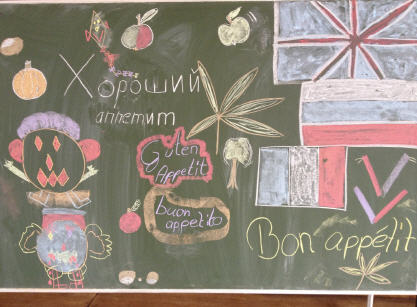 Хороший
аппетит
Guten
Appetit
buon
appetito
Bon appétit